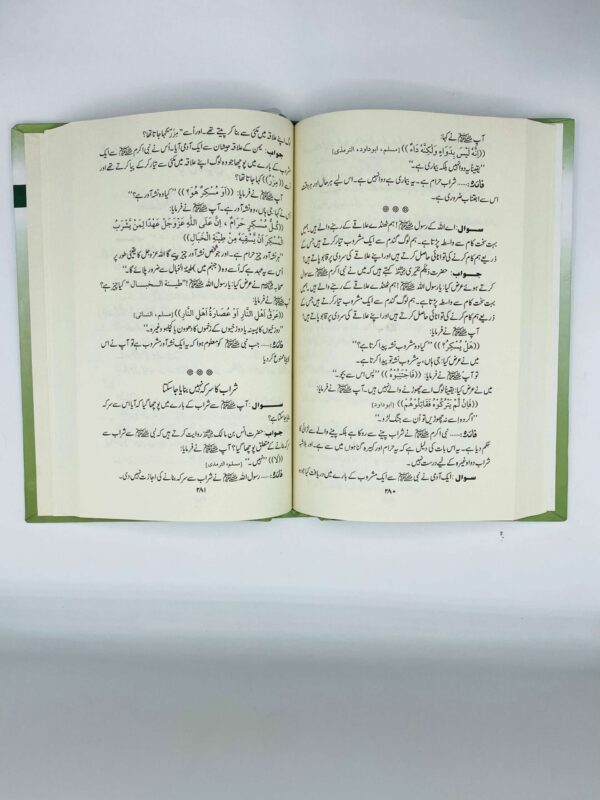 آپ ﷺ نے کہا:
((إِنَّهُ لَيْسَ بِدَوَاءٍ وَلٰكِنَّهُ دَاءٌ)) [مسلم، ابوداود، الترمذی]
"یقیناً یہ دوا نہیں ہے بلکہ بیماری ہے۔"
فائدہ:..... شراب حرام ہے۔ یہ بیماری ہے دوا نہیں ہے۔ اس لیے ہر حال اور ہر وقت
اس سے اجتناب ضروری ہے۔
سوال: اے اللہ کے رسول ﷺ! ہم ٹھنڈے علاقے کے رہنے والے ہیں، ہمیں
بہت سخت کام سے واسطہ پڑتا ہے۔ ہم لوگ گندم سے ایک مشروب تیار کرتے ہیں جس کے
ذریعے ہم کام کرنے کی توانائی حاصل کرتے ہیں اور اپنے علاقے کی سردی پر قابو پاتے ہیں؟
جواب: حضرت دیلم حمیری کہتے ہیں کہ میں نے نبی اکرم ﷺ سے سوال کرتے
ہوئے عرض کیا: یا رسول اللہ ﷺ! ہم ٹھنڈے علاقے کے رہنے والے ہیں، ہمیں
سخت کام سے واسطہ پڑتا ہے۔ ہم لوگ گندم سے ایک مشروب تیار کرتے ہیں جس کے
ذریعے ہم کام کرنے کی توانائی حاصل کرتے ہیں اور اپنے علاقے کی سردی پر قابو پاتے ہیں
آپ ﷺ نے فرمایا:
((هَلْ يُسْكِرُ؟)) "کیا وہ مشروب نشہ پیدا کرتا ہے؟"
میں نے عرض کیا: جی ہاں، یہ مشروب نشہ پیدا کرتا ہے۔
تو آپ ﷺ نے فرمایا: ((فَاجْتَنِبُوهُ)) "پس اس سے بچو۔"
میں نے عرض کیا: یقیناً لوگ اسے چھوڑنے والے نہیں ہیں۔ آپ ﷺ نے فرمایا:
((فَإِنْ لَمْ يَتْرُكُوهُ فَقَاتِلُوهُمْ)) [ابوداود]
"اگر وہ اسے نہ چھوڑیں تو ان سے جنگ لڑو۔"
فائدہ:..... نبی اکرم ﷺ نے شراب پینے سے روکا ہے بلکہ پینے والے سے لڑائی کا
حکم دیا ہے۔ یہ اس بات کی دلیل ہے کہ یہ حرام اور کبیرہ گناہوں میں سے ہے۔ اور بلاشبہ
شراب سے دوا وغیرہ کے لیے درست نہیں۔
سوال: ایک آدمی نے نبی ﷺ سے ایک مشروب کے بارے میں دریافت کیا جو وہ
۲۸۰
اپنے علاقہ میں مکئی سے بنا کر پیتے تھے۔ اور اُسے "مِزْر" کہا جاتا تھا؟
جواب: یمن کے علاقہ جیشان سے ایک آدمی آیا۔ اُس نے نبی اکرم ﷺ سے ایک
شراب کے بارے میں پوچھا جو وہ لوگ اپنے علاقہ میں مکئی سے تیار کر کے پیا کرتے تھے اور
اُسے (مِزْر) کہا جاتا تھا۔
آپ ﷺ نے فرمایا: ((أَوَ مُسْكِرٌ هُوَ؟)) "کیا وہ نشہ آور ہے؟"
اس نے کہا: جی ہاں، وہ نشہ آور ہے۔ آپ ﷺ نے فرمایا:
((كُلُّ مُسْكِرٍ حَرَامٌ، إِنَّ عَلَى اللّٰهِ عَزَّوَجَلَّ عَهْدًا لِمَنْ يَّشْرَبُ
الْمُسْكِرَ أَنْ يَّسْقِيَهُ مِنْ طِيْنَةِ الْخَبَالِ))
"ہر نشہ آور چیز حرام ہے۔ اور جو شخص نشہ آور چیز پیے گا اللہ عزوجل کا یقینی طور پر
اس سے یہ عہد ہے کہ اُسے وہ (جہنم میں) طینۃ الخبال سے ضرور پلائے گا۔"
صحابہ نے عرض کیا: یا رسول اللہ ﷺ! "طینۃ الخبال" کیا چیز ہے؟
آپ ﷺ نے فرمایا:
((عَرَقُ أَهْلِ النَّارِ أَوْ عُصَارَةُ أَهْلِ النَّارِ)) [مسلم، النسائی]
"دوزخیوں کا پسینہ یا دوزخیوں کے زخموں کا دھوون یا کچلہو وغیرہ۔"
فائدہ:..... جب نبی ﷺ کو معلوم ہوا کہ یہ ایک نشہ آور مشروب ہے تو آپ نے اس
کو ممنوع کر دیا
شراب کا سرکہ نہیں بنایا جا سکتا
سوال: آپ ﷺ سے شراب کے بارے میں پوچھا گیا کہ آیا اس سے سرکہ
بنایا جا سکتا ہے؟
جواب: حضرت انس بن مالک روایت کرتے ہیں کہ نبی ﷺ سے شراب سے
سرکہ بنانے کے متعلق پوچھا گیا؟ آپ ﷺ نے فرمایا:
((لَا)) "نہیں۔" [مسلم، الترمذی]
فائدہ:..... رسول اللہ ﷺ نے شراب سے سرکہ بنانے کی اجازت نہیں دی۔
۲۸۱